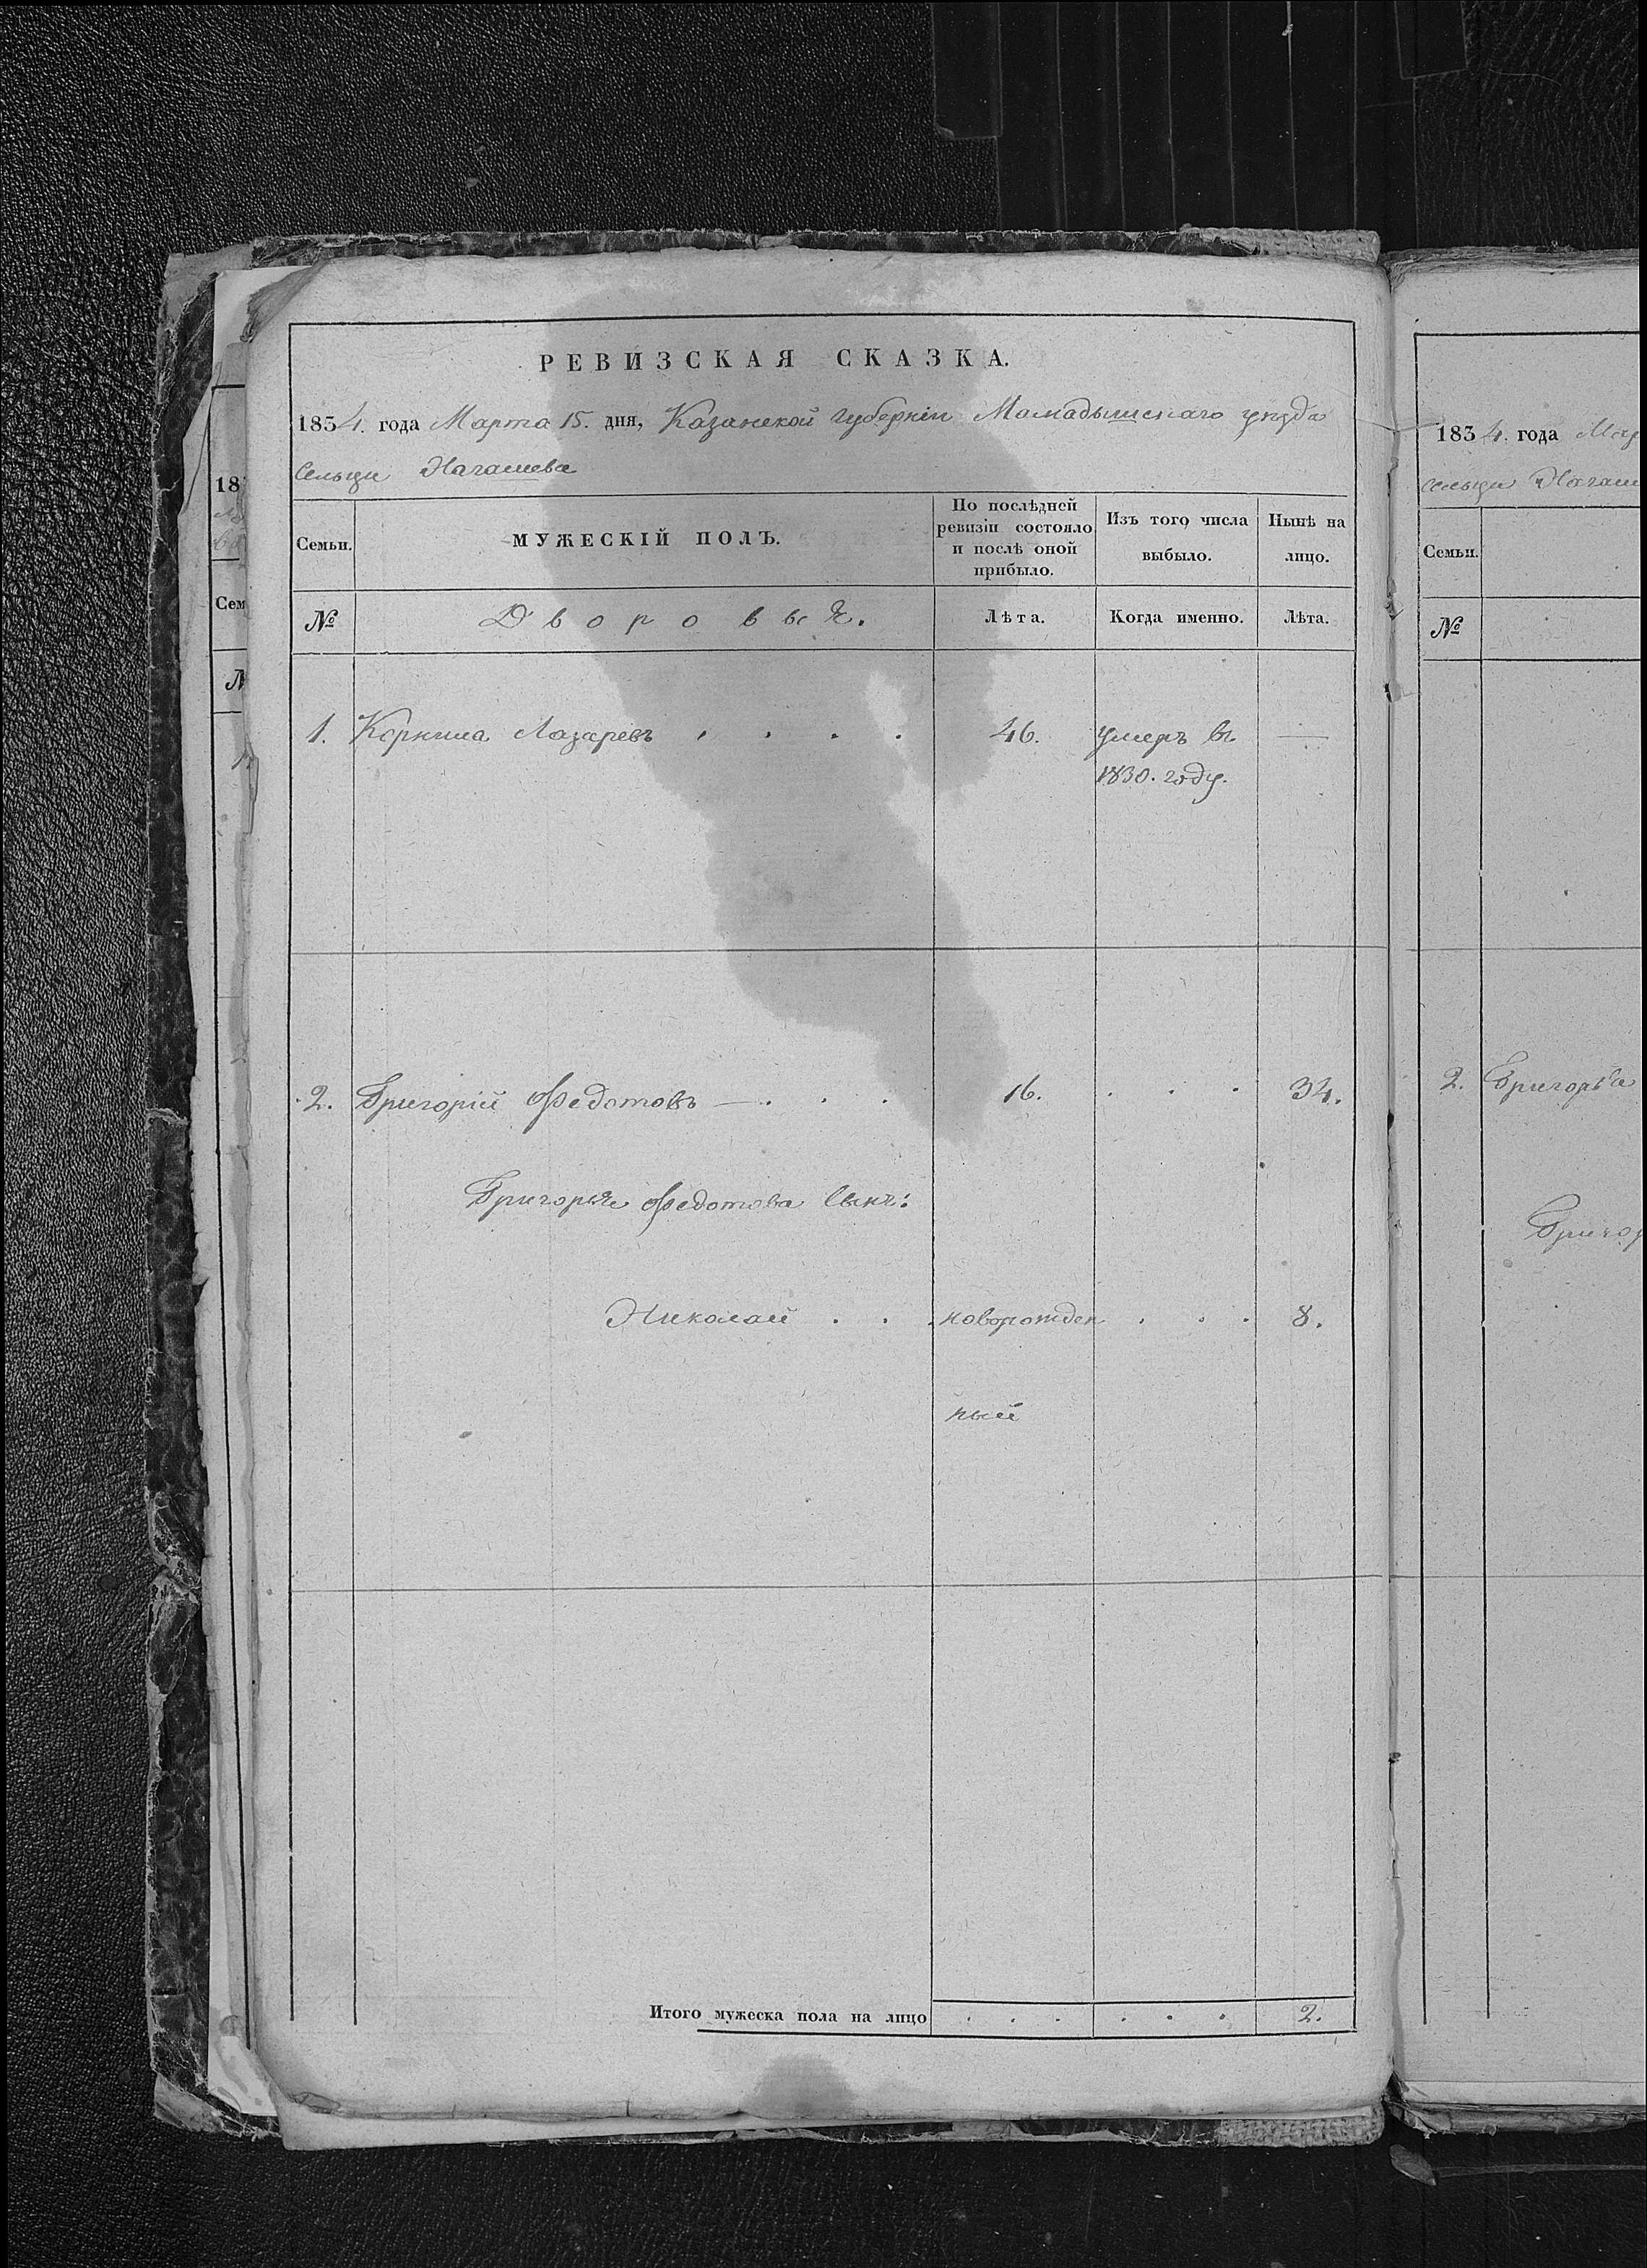 РЕВИЗСКАЯ СКАЗКА.
1834. года Марта 15. дня, Казанской губернiи Мамадышскаго уѣзда
сельца Нагашева
Семьи.
МУЖЕСКIЙ ПОЛЪ.
По послѣдней
ревизiи состояло
и послѣ оной
прибыло.
Изъ того числа
выбыло.
Нынѣ на
лицо.
№
Дворовыя.
Лѣта.
Когда именно.
Лѣта.
1. Корнила Лазаревъ . . . . 46. умеръ въ —
1830. году.
2. Григорiй Федотовъ — . . . 16. . . . 34.
Григорья Федотова сынъ:
Николай . . . новорожден . . . 8.
ный
Итого мужеска пола на лицо . . . . . . 2.
1834. года Мар
сельца Нагаш
Семьи.
№
2. Григорья
Григор
18
Сем